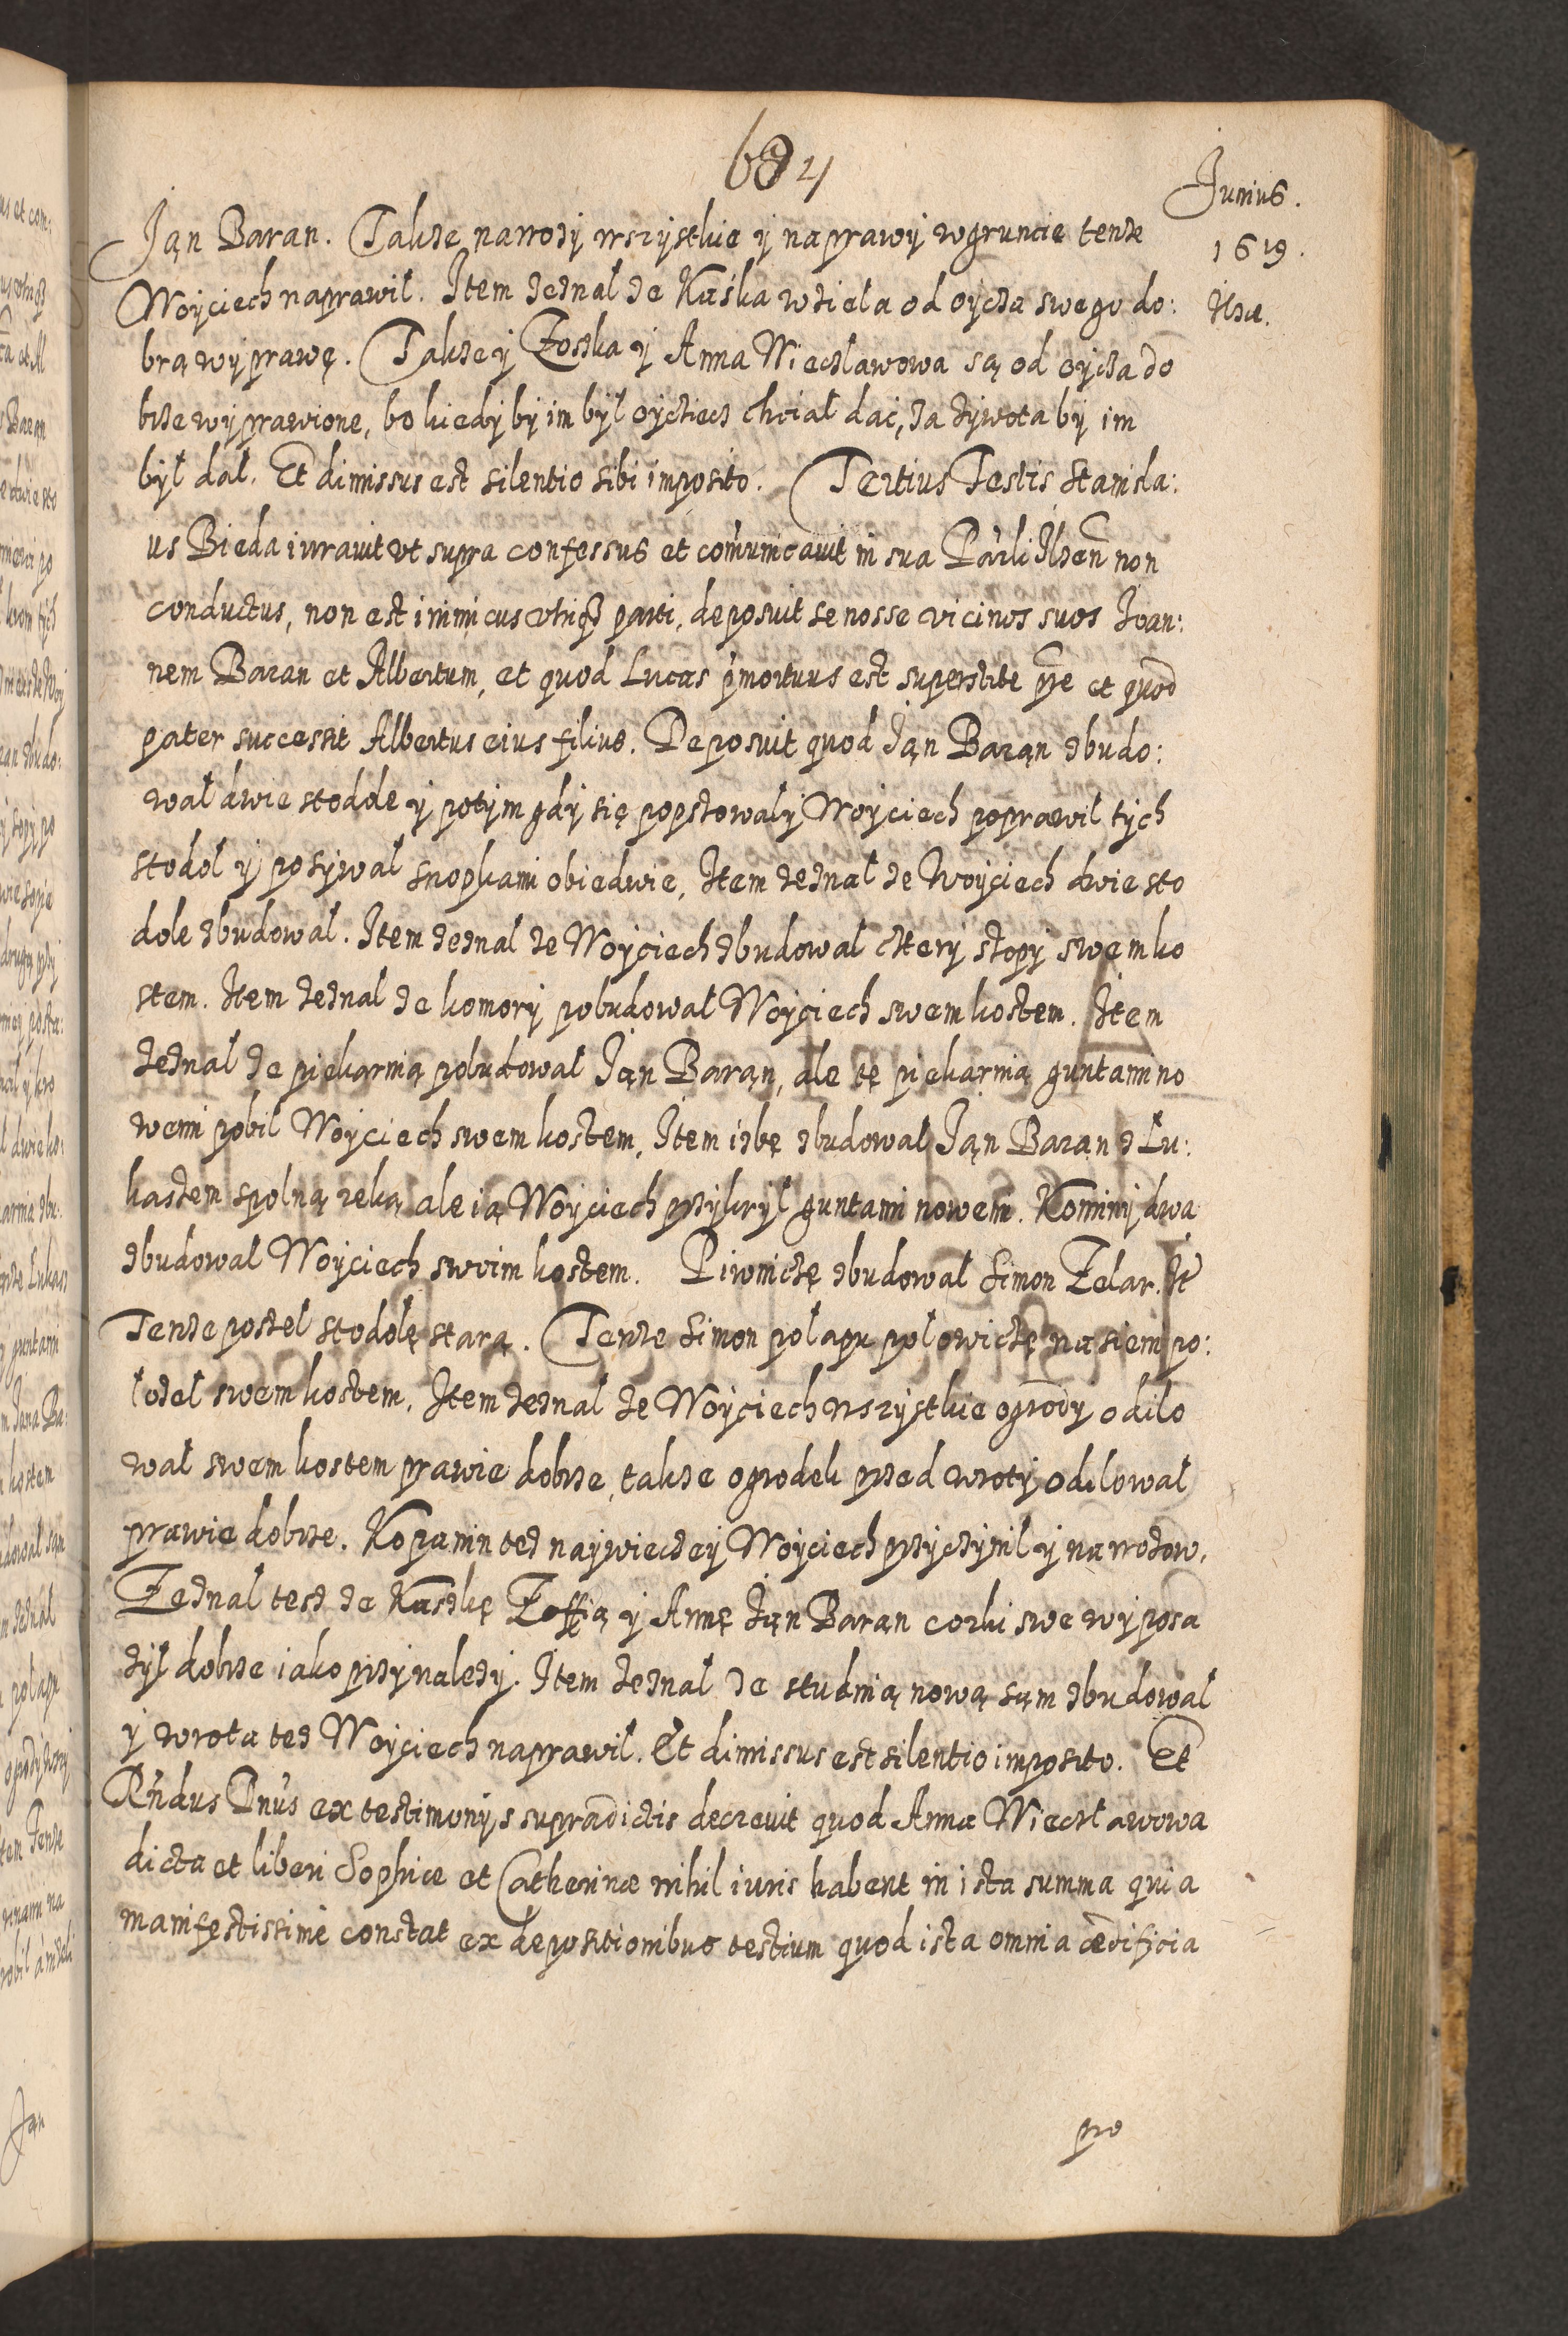 684
Junius.
1619.
Ilza.
Jan Baran. Takze nawozy wszystkie y naprawy w gruncie tenze
Woyciech naprawil. Item zeznal ze Kaśka wziela od oycza swego do:
brą wyprawę. Takze y Zoszka y Anna Wieczlawowa są od oycza do
brze wyprawione, bo kiedyby im byl oycziecz chcial dać, za zywota by im
byl dal. Et dimissus est silentio sibi imposito. Tertius Testis Stanisla:
us Bieda iuravit ut supra confessus et comunicavit in sua Paĕli Ilzeñ non
conductus, non est inimicus utriq3 parti, deposuit se nosse vicinos suos Ioan:
nem Baran et Albertum, et quod Lucas pmortuus est superstite pre et quod
pater successit Albertus eius filius. Deposuit quod Jąn Barąn zbudo:
wal dwie stodole y potym gdy się popszowaly Woyciech poprawil tych
stodol y poszywal snopkami obiedwie, Item zeznal ze Woyciech dwie sto
dole zbudowal. Item zeznal ze Woyciech zbudowal cztery szopy swem ko
sztem. Item zeznal ze komory pobudowal Woyciech swem kosztem. Item
zeznal ze piekarnią pobudowal Jąn Barąn, ale tę piekarnią guntami no
wemi pobil Woyciech swem kosztem, Item izbę zbudowal Jąn Barąn z Lu:
kaszem spolną reką, ale ią Woyciech przykryl guntami nowemi. Kominy dwa
zbudowal Woyciech swoim kosztem. Piwniczę zbudowal Simon Zelar. It
Tenze poszel stodolę starą. Tenze Simon pol apu polowiczę na siem po:
lozel swem kosztem, Item zeznal ze Woyciech wszystkie ogrody odilo
wal swem kosztem prawie dobrze, takze ogrodek przed wroty odilowal
prawie dobrze. Kopanin tez naywieczey Woyciech przyczynil y nawozow,
Zeznal tesz ze Kaszkę Zoffią y Annę Jąn Barąn corki swe wyposa
zyl dobrze iako przynalezy. Item zeznal ze studnią nową sąm zbudowal
y wrota tez Woyciech naprawil. Et dimissus est silentio imposito. Et
Rndus Dnus ex testimonys supradictis decrevit quod Anna Wieczlawowa
dicta et liberi Sophiæ et Catherinæ nihil iuris habent in ista summa quia
manifestissime constat ex depositionibus testium quod ista omnia ædificia
pro